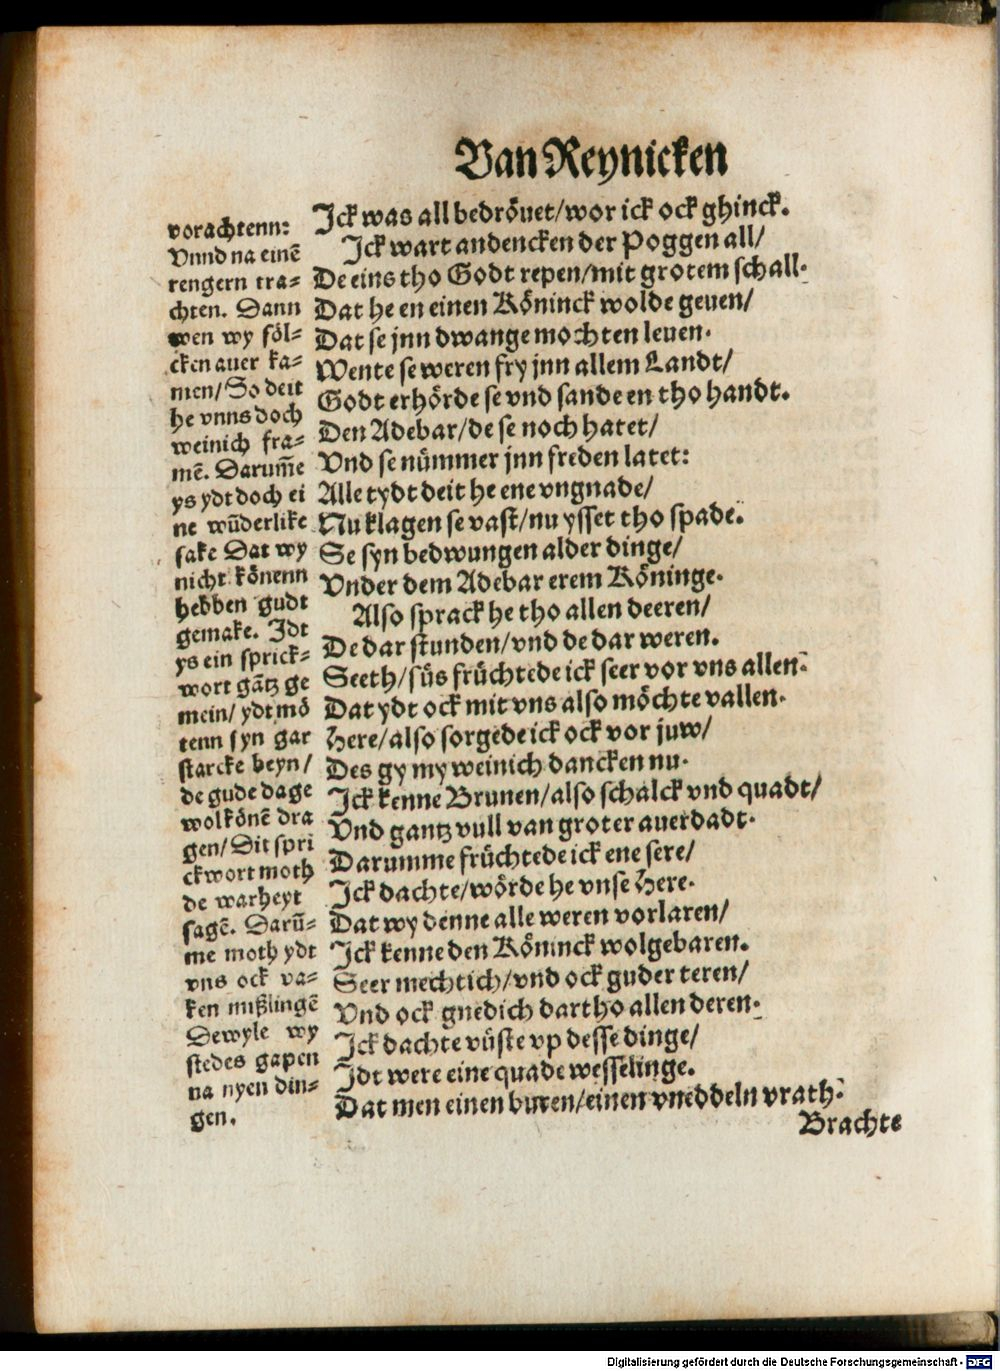 Van Reynicken
vorachtenn:
Vnnd na einē
rengern tra=
chten. Dann
wen wy föl=
cken auer ka=
men/ So deit
he vnns doch
weinich fra=
mē. Darum̄e
ys ydt doch ei
ne wūderlike
sake Dat wy
nicht könenn
hebben gudt
gemake. Idt
ys ein sprick=
wort gātz ge
mein/ ydt mö
tenn syn gar
starcke beyn/
de gude dage
wolkönē dra
gen/ Dit spri
ckwort moth
de warheyt
sagē. Darū=
me moth ydt
vns ock va=
ken mißlingē
Dewyle wy
stedes gapen
na nyen din=
gen.
Jck was all bedröuet/wor ick ock ghinck.
Jck wart andencken der Poggen all/
De eins tho Godt repen/mit grotem schall.
Dat he en einen Köninck wolde geuen/
Dat se jnn dwange mochten leuen.
Wente se weren fry jnn allem Landt/
Godt erhörde se vnd sande en tho handt.
Den Adebar/de se noch hatet/
Vnd se nümmer jnn freden latet:
Alle tydt deit he ene vngnade/
Nu klagen se vast/nu ysset tho spade.
Se syn bedwungen alder dinge/
Vnder dem Adebar erem Köninge.
Also sprack he tho allen deeren/
De dar stunden/vnd de dar weren.
Seeth/süs früchtede ick seer vor vns allen.
Dat ydt ock mit vns also möchte vallen.
Here/also sorgede ick ock vor juw/
Des gy my weinich dancken nu.
Jck kenne Brunen/also schalck vnd quadt/
Vnd gantz vull van groter auerdadt.
Darumme früchtede ick ene sere/
Jck dachte/wörde he vnse Here.
Dat wy denne alle weren vorlaren/
Jck kenne den Köninck wolgebaren.
Seer mechtich/vnd ock guder teren/
Vnd ock gnedich dartho allen deren.
Jck dachte vüste vp desse dinge/
Idt were eine quade wesselinge.
Dat men einen buren/einen vneddeln vrath.
Brachte
Digitalisierung gefördert durch die Deutsche Forschungsgemeinschaft - DFG